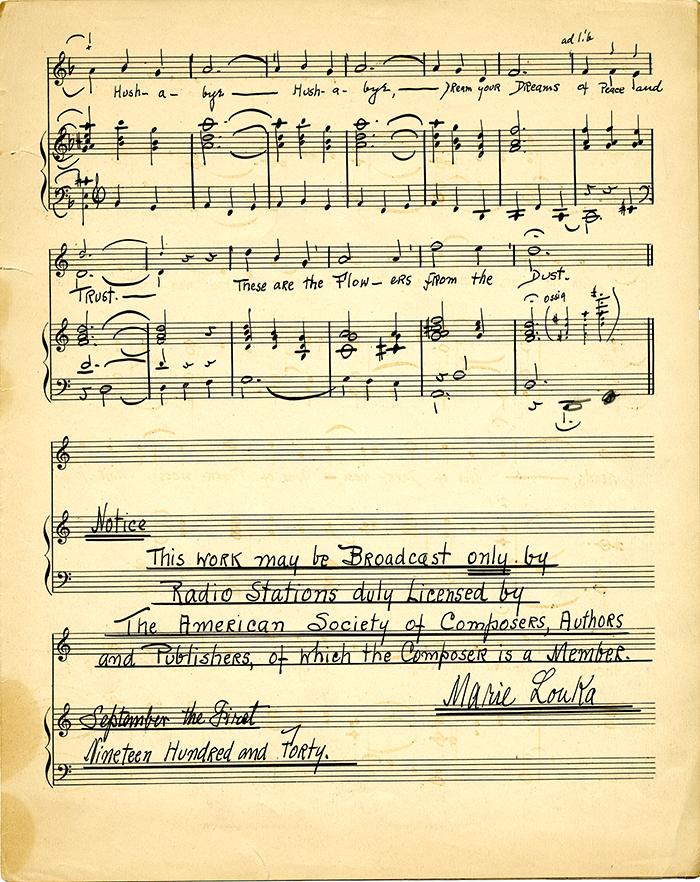 ad lib
Hush-a-bye — Hush-a-bye, — Dream your Dreams of Peace and
Trust. — These are the Flow-ers from the Dust.
ossia
Notice
This work may be Broadcast only by
Radio Stations duly Licensed by
The American Society of Composers, Authors
and Publishers, of which the Composer is a Member.
Marie Louka
September the First
Nineteen Hundred and Forty.